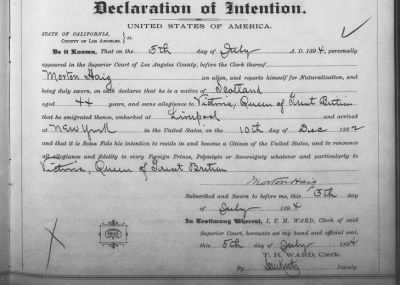 Declaration of Intention.
UNITED STATES OF AMERICA.
STATE OF CALIFORNIA,
COUNTY OF LOS ANGELES. ss.
Be it Known, That on the 5th day of July A. D. 1894, personally
appeared in the Superior Court of Los Angeles County, before the Clerk thereof
Morton Haig an alien, and reports himself for Naturalization, and
being duly sworn, on oath declares that he is a native of Scotland
aged 44 years, and owes allegiance to Victoria, Queen of Great Britian
that he emigrated thence, embarked at Liverpool and arrived
at New York in the United States, on the 10th day of Dec 1882
and that it is bona fide his intention to reside in and become a Citizen of the United States, and to renounce
all allegiance and fidelity to every Foreign Prince, Potentate or Sovereignty whatever and particularly to
Victoria, Queen of Great Britian
Morton Haig
Subscribed and Sworn to before me, this 5th day
of July 1894
In Testimony Whereof, I, T. H. WARD, Clerk of said
Superior Court, hereunto set my hand and official seal,
this 5th day of July 1894
T. H. WARD, Clerk.
By Deputy.
SEAL